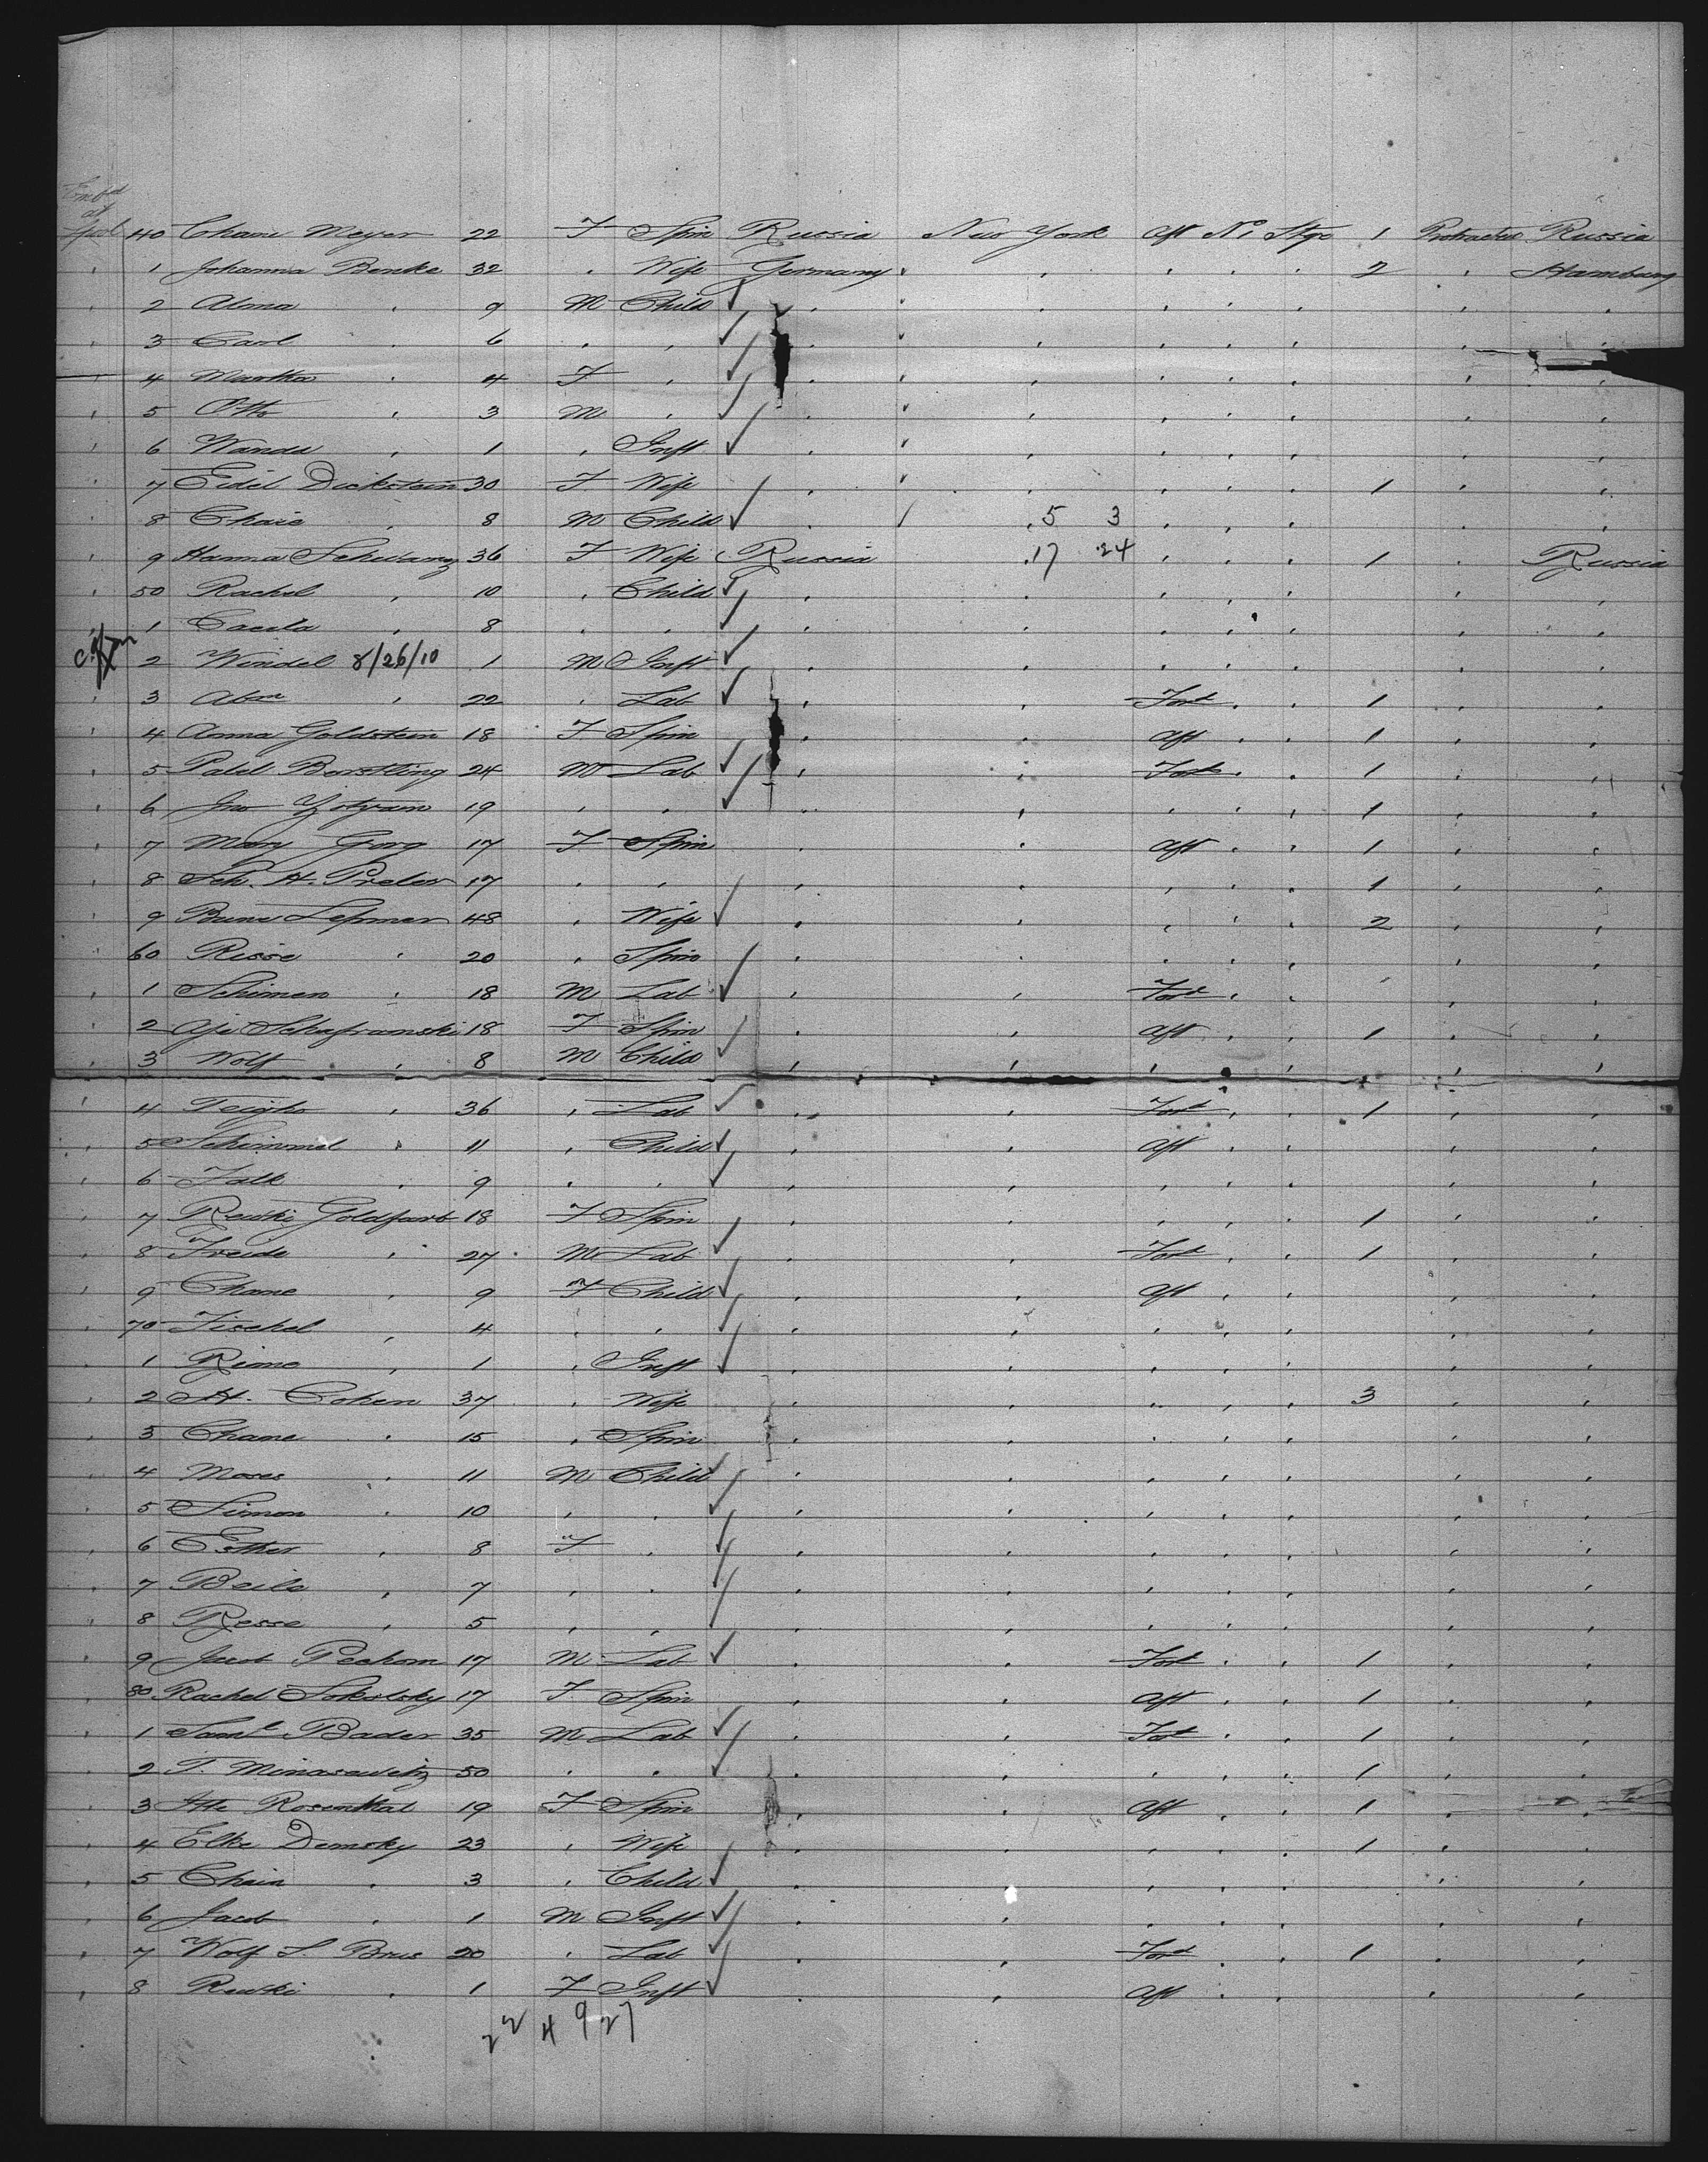 Embd
at
Lpool 40 Chane Meyer 22 F Spin Russia New York Aft No 1 Stge 1 Protracted Russia
" 1 Johanna Benke 32 " Wife Germany " " " " " 2 " Hamburg
" 2 Alma " 9 M Child " " " " " " " "
" 3 Carl " 6 " " " " " " " " " "
" 4 Martha " 4 F " " " " " " " " "
" 5 Otto " 3 M " " " " " " " " "
" 6 Wanda " 1 " Inft " " " " " " " "
" 7 Eidel Dickstein 30 F Wife " " " " " " 1 " "
" 8 Chaie " 8 M Child " " " 5 3 " " " " "
" 9 Hanna Schwarz 36 F Wife Russia " 17 24 " " " 1 " Russia
" 50 Rachel " 10 " Child " " " " " " "
" 1 Caecila " 8 " " " " " " " " "
2 Windel 8/26/10 1 M Inft " " " " " " "
" 3 Abm " 22 " Lab " " Ford " " 1 " "
" 4 Anna Goldstein 18 F Spin " " Aft " " 1 " "
" 5 Palel Borstling 24 M Lab " " Ford " " 1 " "
" 6 Jno 19 " " " " " " " 1 " "
" 7 Mary Gorg 17 F Spin " " Aft " " 1 " "
" 8 Sch. H. Preler 17 " " " " " " " 1 " "
" 9 Bune Lepmer 48 " Wife " " " " " 2 " "
" 60 Risse " 20 " Spin " " " " " " "
" 1 Schimen " 18 M Lab " " Ford " " " " "
" 2 Aje Schafranski 18 F Spin " " Aft " " 1 " "
" 3 Wolf " 8 M Child " " " " " " "
" 4 " 36 " Lab " " Ford " " 1 " "
" 5 Schimmel " 11 " Child " " Aft " " " "
" 6 Falk " 9 " " " " " " " " "
" 7 Rewki Goldfarb 18 F Spin " " " " " 1 " "
" 8 Freide " 27 M Lab " " Ford " " 1 " "
" 9 Chane " 9 F Child " " Aft " " " "
" 70 Fischel " 4 " " " " " " " " "
" 1 Rime " 1 " Inft " " " " " " "
" 2 H. Cohen 37 " Wife " " " " " 3 " "
" 3 Chane " 15 " Spin " " " " " " "
" 4 Moses " 11 M Child " " " " " " "
" 5 Simon " 10 " " " " " " " " "
" 6 Esther " 8 F " " " " " " " "
" 7 Beile " 7 " " " " " " " " "
" 8 Resse " 5 " " " " " " " " "
" 9 Jacob Pechom 17 M Lab " " Ford " " 1 " "
" 80 Rachel Sokolsky 17 F Spin " " Aft " " 1 " "
" 1 Saml Bader 35 M Lab " " Ford " " 1 " "
" 2 T. Minasewitz 50 " " " " " " " 1 " "
" 3 Itte Rosenthal 19 F Spin " " Aft " " 1 " "
" 4 Elke Demsky 23 " Wife " " " " " 1 " "
" 5 Chain " 3 " Child " " " " " " "
" 6 Jacob " 1 M Inft " " " " " " "
" 7 Wolf S. Brus 20 " Lab " " Ford " " 1 " "
" 8 Rewki " 1 F Inft " " Aft " " " "
22 4 9 27